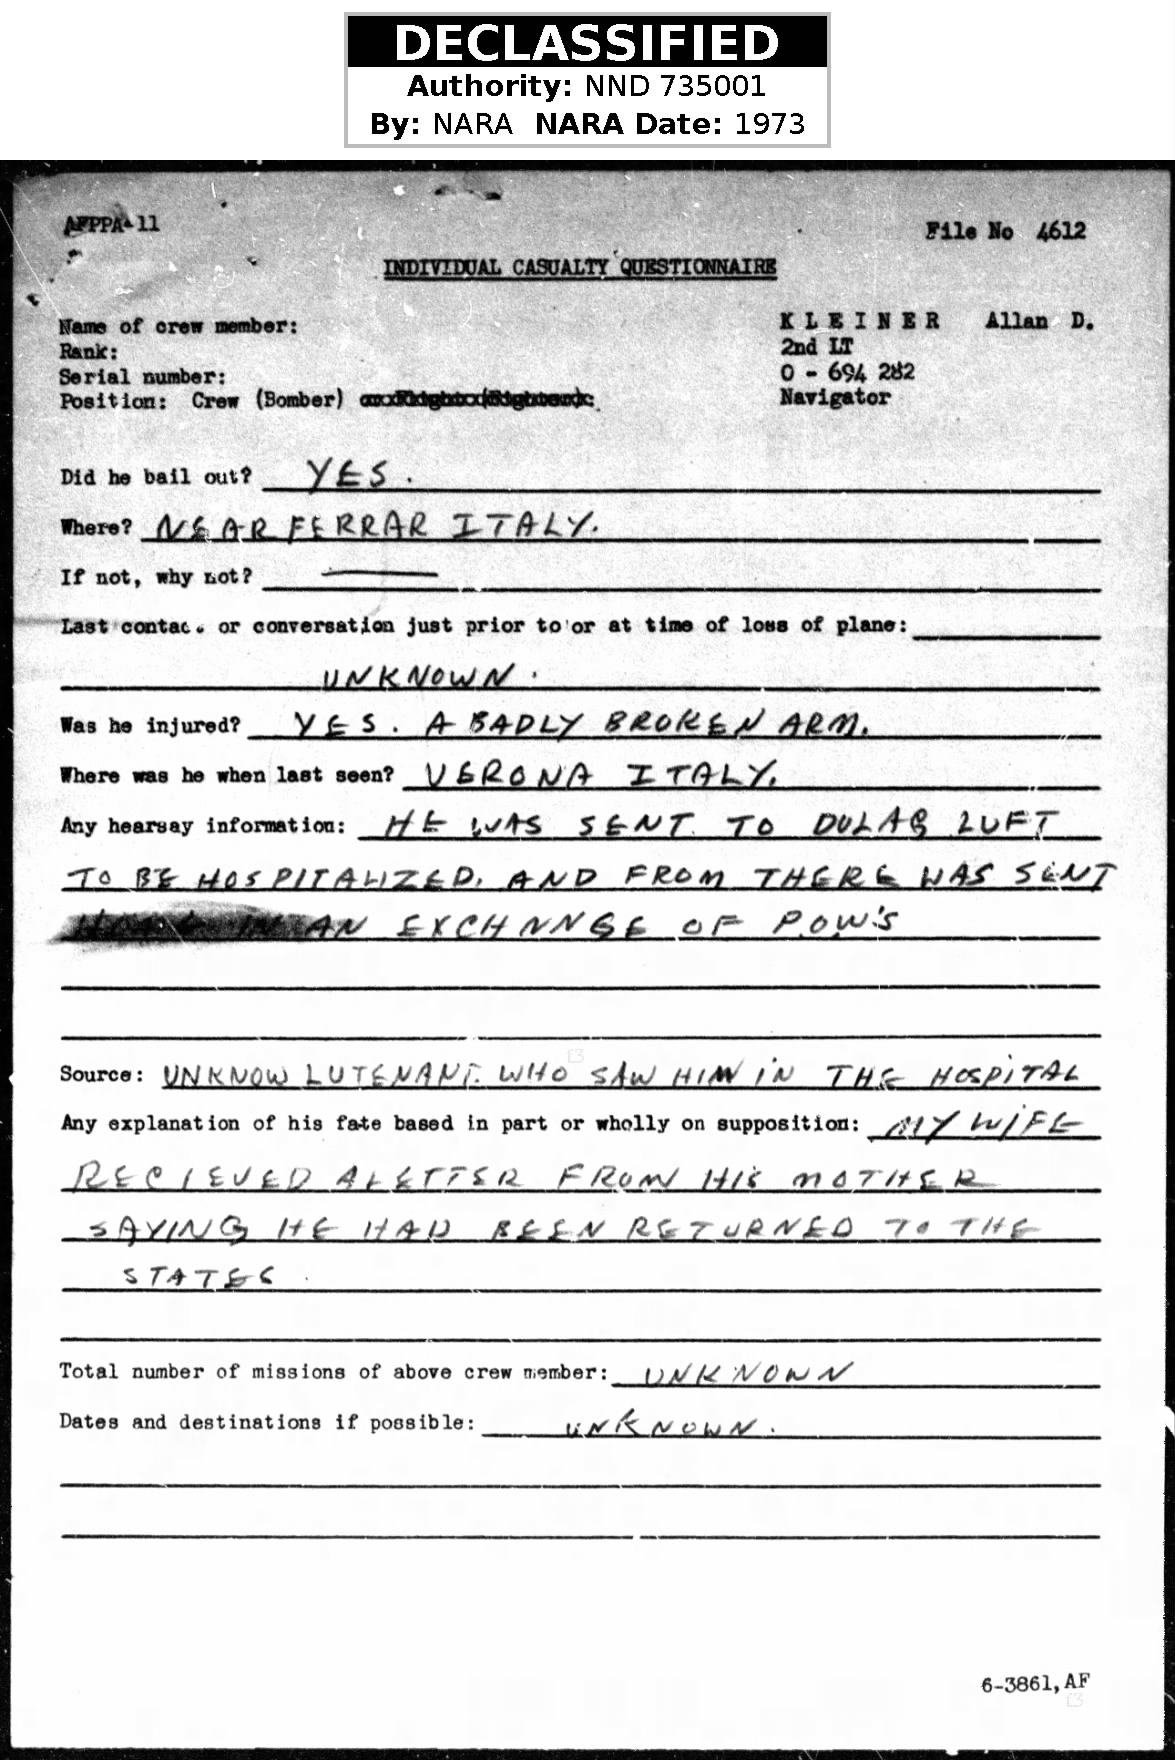 DECLASSIFIED
Authority: NND 735001
By: NARA NARA Date: 1973
AFPPA-11
File No 4612
INDIVIDUAL CASUALTY QUESTIONNAIRE
Name of crew member: K L E I N E R Allan D.
Rank: 2nd LT
Serial number: O - 694 282
Position: Crew (Bomber) Navigator
Did he bail out? YES.
Where? NEAR FERRAR ITALY.
If not, why not? —
Last contac. or conversation just prior to or at time of loss of plane:
UNKNOWN.
Was he injured? YES. A BADLY BROKEN ARM.
Where was he when last seen? VERONA ITALY.
Any hearsay information: HE WAS SENT TO DULAG LUFT
TO BE HOSPITALIZED. AND FROM THERE WAS SENT
IN AN EXCHNNGE OF P.O.W'S
Source: UNKNOW LUTENANT. WHO SAW HIM IN THE HOSPITAL
Any explanation of his fate based in part or wholly on supposition: MY WIFE
RECIEVED A LETTER FROM HIS MOTHER
SAYING HE HAD BEEN RETURNED TO THE
STATES
Total number of missions of above crew member: UNKNOWN
Dates and destinations if possible: UNKNOWN.
6-3861, AF